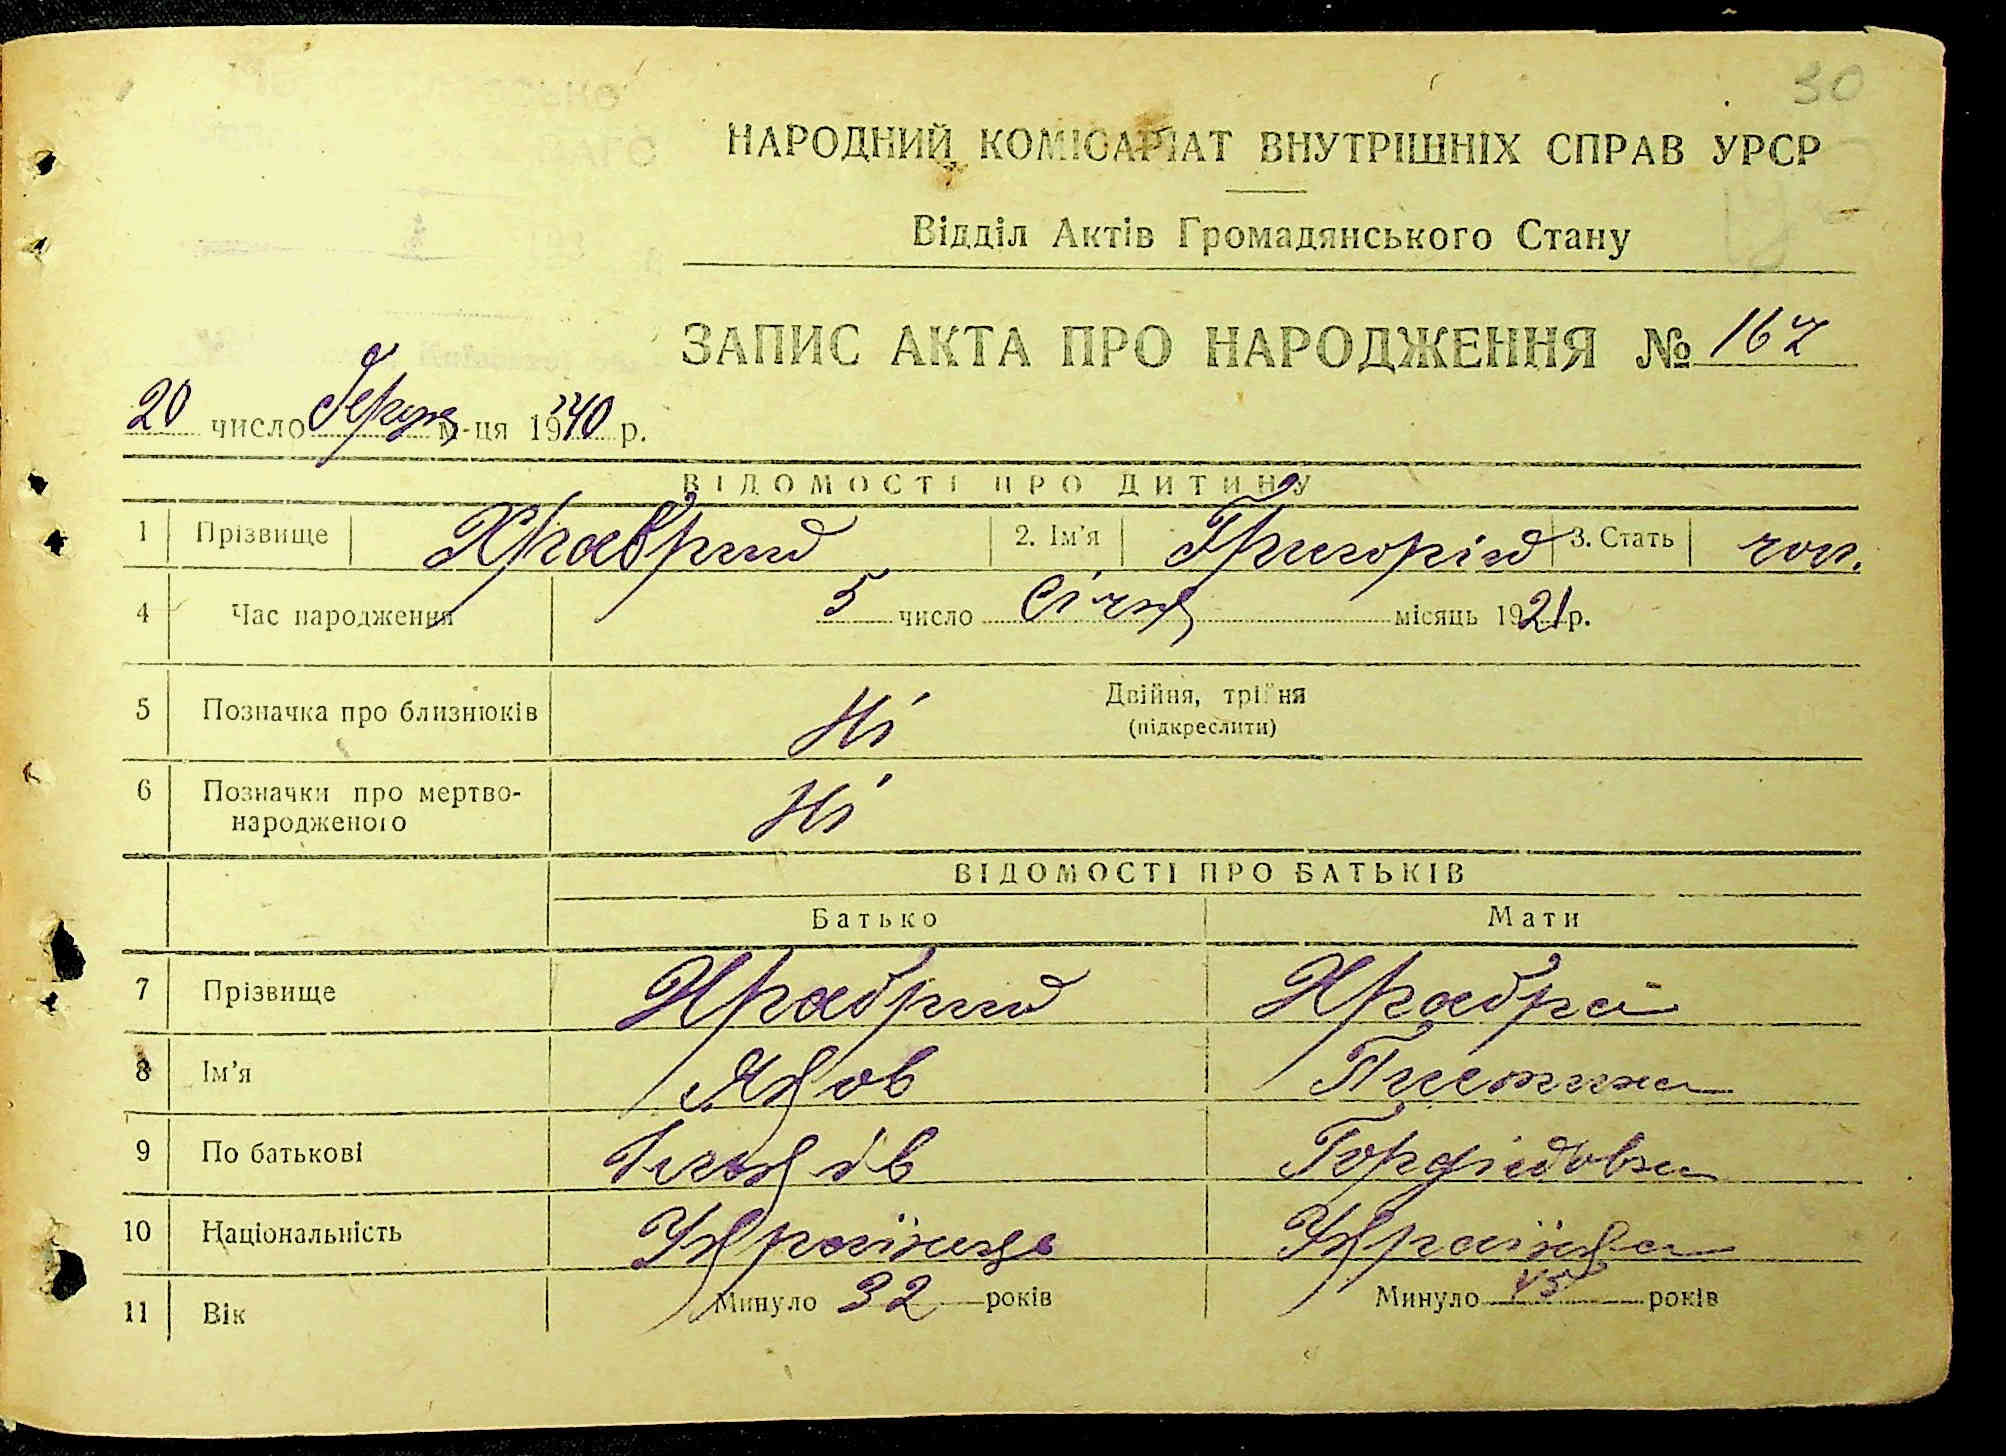 30
НАРОДНИЙ КОМІСАРІАТ ВНУТРІШНІХ СПРАВ УРСР
Відділ Актів Громадянського Стану
ЗАПИС АКТА ПРО НАРОДЖЕННЯ № 167
20 число Серпня м-ця 1940 р.
ВІДОМОСТІ ПРО ДИТИНУ
1 Прізвище Храбрий 2. Ім'я Григорій 3. Стать чол.
4 Час народження 5 число Січня місяць 1921 р.
5 Позначка про близнюків Ні Двійня, трійня
(підкреслити)
6 Позначки про мертво-
народженого Ні
ВІДОМОСТІ ПРО БАТЬКІВ
Батько Мати
7 Прізвище Храбрий Храбра
8 Ім'я Яков Пистина
9 По батькові Гордіовна
10 Національність Українець Українка
11 Вік Минуло 32 років Минуло 45 років